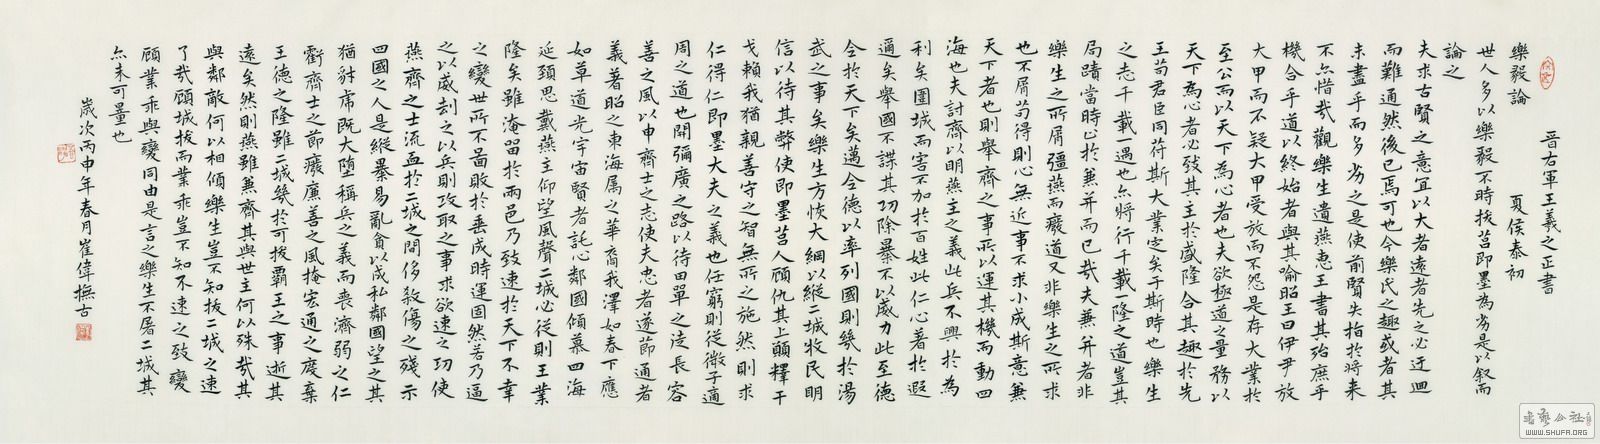 晉右軍王羲之正書
樂毅論 夏侯泰初
世人多以樂毅不時拔莒即墨為劣是以叙而
論之
夫求古賢之意宜以大者遠者先之必迂迴
而難通然後已焉可也今樂氏之趣或者其
未盡乎而多劣之是使前賢失指於將來
不亦惜哉觀樂生遺燕惠王書其殆庶乎
機合乎道以終始者與其喻昭王曰伊尹放
大甲而不疑大甲受放而不怨是存大業於
至公而以天下為心者也夫欲極道之量務以
天下為心者必致其主於盛隆合其趣於先
王苟君臣同符斯大業定矣于斯時也樂生
之志千載一遇也亦將行千載一隆之道豈其
局蹟當時止於兼并而已哉夫兼并者非
樂生之所屑彊燕而廢道又非樂生之所求
也不屑苟得則心無近事不求小成斯意兼
天下者也則舉齊之事所以運其機而動四
海也夫討齊以明燕主之義此兵不興於為
利矣圍城而害不加於百姓此仁心著於遐
邇矣舉國不謀其功除暴不以威力此至德
令於天下矣邁令德以率列國則幾於湯
武之事矣樂生方恢大綱以縱二城牧民明
信以待其弊使即墨莒人顧仇其上願釋干
戈賴我猶親善守之智無所之施然則求
仁得仁即墨大夫之義也任窮則從微子適
周之道也開彌廣之路以待田單之徒長容
善之風以申齊士之志使夫忠者遂節通者
義著昭之東海屬之華裔我澤如春下應
如草道光宇宙賢者託心鄰國傾慕四海
延頸思戴燕主仰望風聲二城必從則王業
隆矣雖淹留於兩邑乃致速於天下不幸
之變世所不啚敗於垂成時運固然若乃逼
之以威刦之以兵則攻取之事求欲速之功使
燕齊之士流血於二城之間侈殺傷之殘示
四國之人是縱暴易亂貪以成私鄰國望之其
猶豺虎既大墮稱兵之義而喪濟弱之仁
虧齊士之節廢廉善之風掩宏通之度棄
王德之隆雖二城幾於可拔霸王之事逝其
遠矣然則燕雖兼齊其與世主何以殊哉其
與鄰敵何以相傾樂生豈不知拔二城之速
了哉顧城拔而業乖豈不知不速之致變
顧業乖與變同由是言之樂生不屠二城其
亦未可量也
歲次丙申年春月崔偉撫古
WWW.SHUFA.ORG